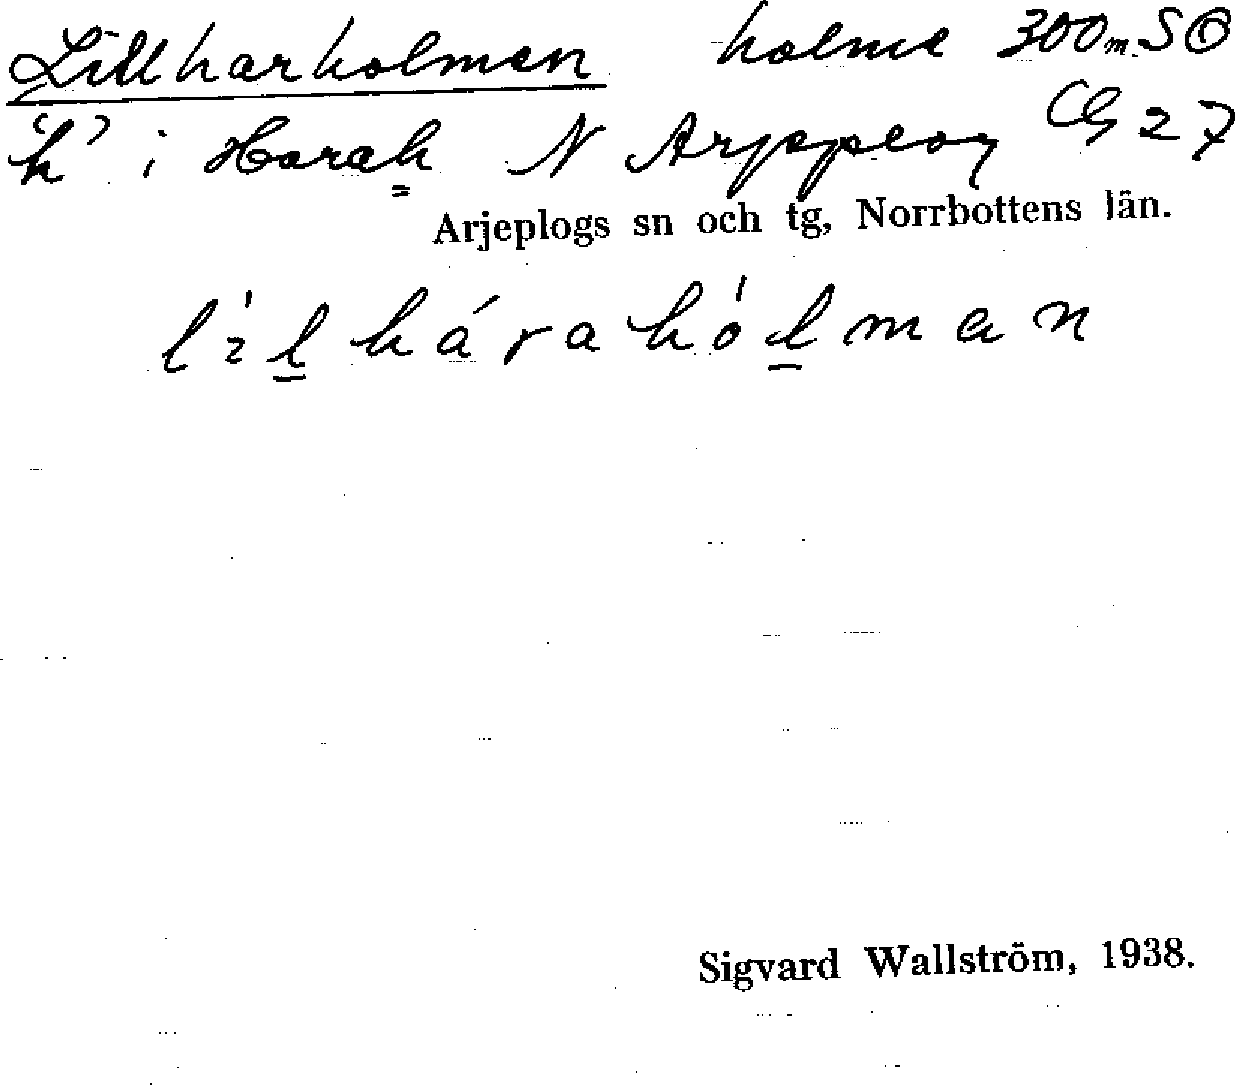 Lillharholmen holme 300 m SO
'h' i Harah N Arjeplog CG 27
Arjeplogs sn och tg, Norrbottens län.
lìlhárahólman
Sigvard Wallström, 1938.